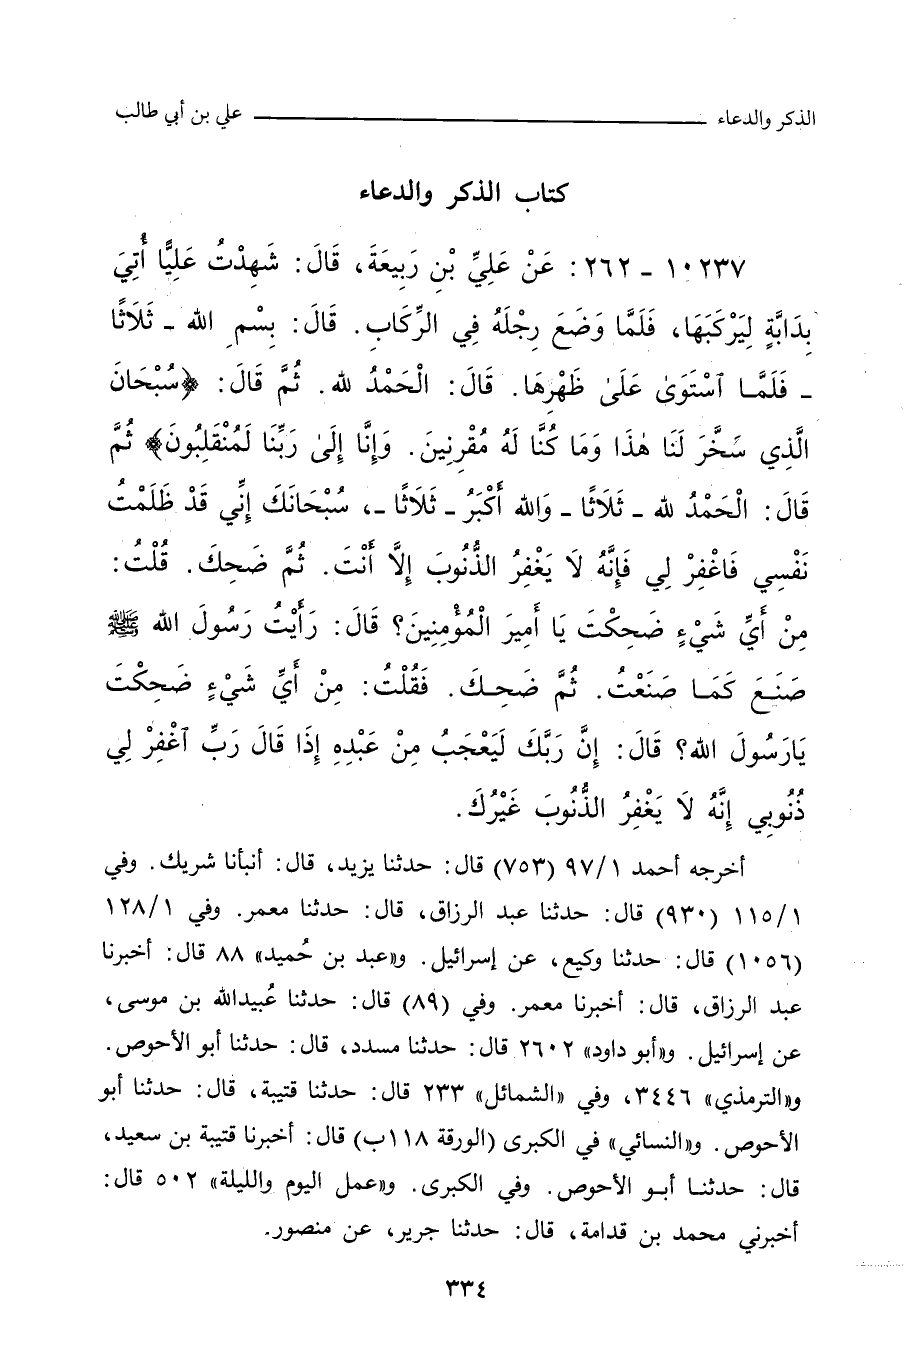 الذكر والدعاء ــــــــــــــــ علي بن أبي طالب
كتاب الذكر والدعاء
١٠٢٣٧ - ٢٦٢ : عَنْ عَلِيِّ بْنِ رَبِيعَةَ، قَالَ: شَهِدْتُ عَلِيًّا أُتِيَ
بِدَابَّةٍ لِيَرْكَبَهَا، فَلَمَّا وَضَعَ رِجْلَهُ فِي الرِّكَابِ. قَالَ: بِسْمِ الله - ثَلَاثًا
- فَلَمَّا ٱسْتَوَىٰ عَلَىٰ ظَهْرِهَا. قَالَ: الْحَمْدُ لله. ثُمَّ قَالَ: ﴿سُبْحَانَ
الَّذِي سَخَّرَ لَنَا هٰذَا وَمَا كُنَّا لَهُ مُقْرِنِينَ. وَإِنَّا إِلَىٰ رَبِّنَا لَمُنْقَلِبُونَ﴾ ثُمَّ
قَالَ: الْحَمْدُ لله - ثَلَاثًا - وَالله أَكْبَرُ - ثَلَاثًا -، سُبْحَانَكَ إِنِّي قَدْ ظَلَمْتُ
نَفْسِي فَاغْفِرْ لِي فَإِنَّهُ لَا يَغْفِرُ الذُّنُوبَ إِلَّا أَنْتَ. ثُمَّ ضَحِكَ. قُلْتُ:
مِنْ أَيِّ شَيْءٍ ضَحِكْتَ يَا أَمِيرَ الْمُؤْمِنِينَ؟ قَالَ: رَأَيْتُ رَسُولَ الله ﷺ
صَنَعَ كَمَا صَنَعْتُ. ثُمَّ ضَحِكَ. فَقُلْتُ: مِنْ أَيِّ شَيْءٍ ضَحِكْتَ
يَارَسُولَ الله؟ قَالَ: إِنَّ رَبَّكَ لَيَعْجَبُ مِنْ عَبْدِهِ إِذَا قَالَ رَبِّ ٱغْفِرْ لِي
ذُنُوبِي إِنَّهُ لَا يَغْفِرُ الذُّنُوبَ غَيْرُكَ.
أخرجه أحمد ٩٧/١ (٧٥٣) قال: حدثنا يزيد، قال: أنبأنا شريك. وفي
١١٥/١ (٩٣٠) قال: حدثنا عبد الرزاق، قال: حدثنا معمر. وفي ١٢٨/١
(١٠٥٦) قال: حدثنا وكيع، عن إسرائيل. و«عبد بن حُميد» ٨٨ قال: أخبرنا
عبد الرزاق، قال: أخبرنا معمر. وفي (٨٩) قال: حدثنا عُبيدالله بن موسى،
عن إسرائيل. و«أبو داود» ٢٦٠٢ قال: حدثنا مسدد، قال: حدثنا أبو الأحوص.
و«الترمذي» ٣٤٤٦، وفي «الشمائل» ٢٣٣ قال: حدثنا قتيبة، قال: حدثنا أبو
الأحوص. و«النسائي» في الكبرى (الورقة ١١٨ب) قال: أخبرنا قتيبة بن سعيد،
قال: حدثنا أبو الأحوص. وفي الكبرى. و«عمل اليوم والليلة» ٥٠٢ قال:
أخبرني محمد بن قدامة، قال: حدثنا جرير، عن منصور.
٣٣٤